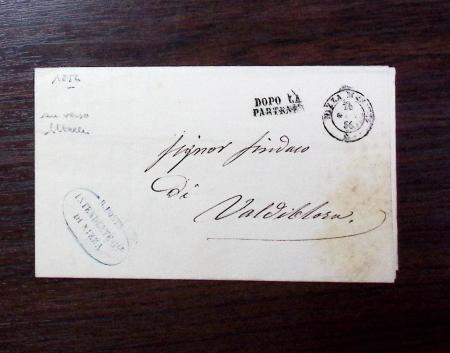 1856
DOPO LA
PARTENZA
NIZZA
56
Signor Sindaco
Di
Valdiblora.
INTENDENTE
DI NIZZA